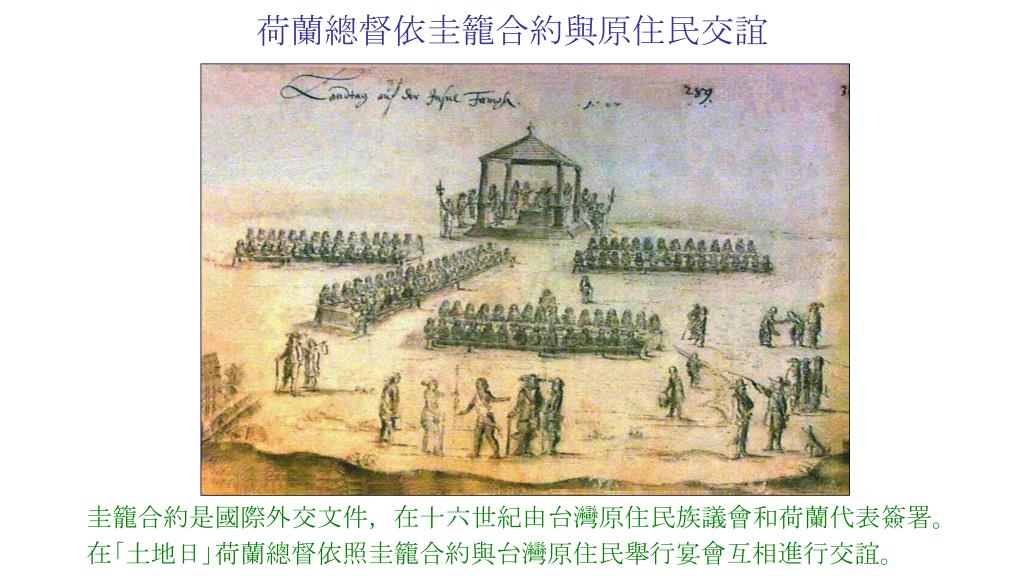 荷蘭總督依圭籠合約與原住民交誼
Landtag auf der Insul Formosa.
289.
圭籠合約是國際外交文件，在十六世紀由台灣原住民族議會和荷蘭代表簽署。
在「土地日」荷蘭總督依照圭籠合約與台灣原住民舉行宴會互相進行交誼。